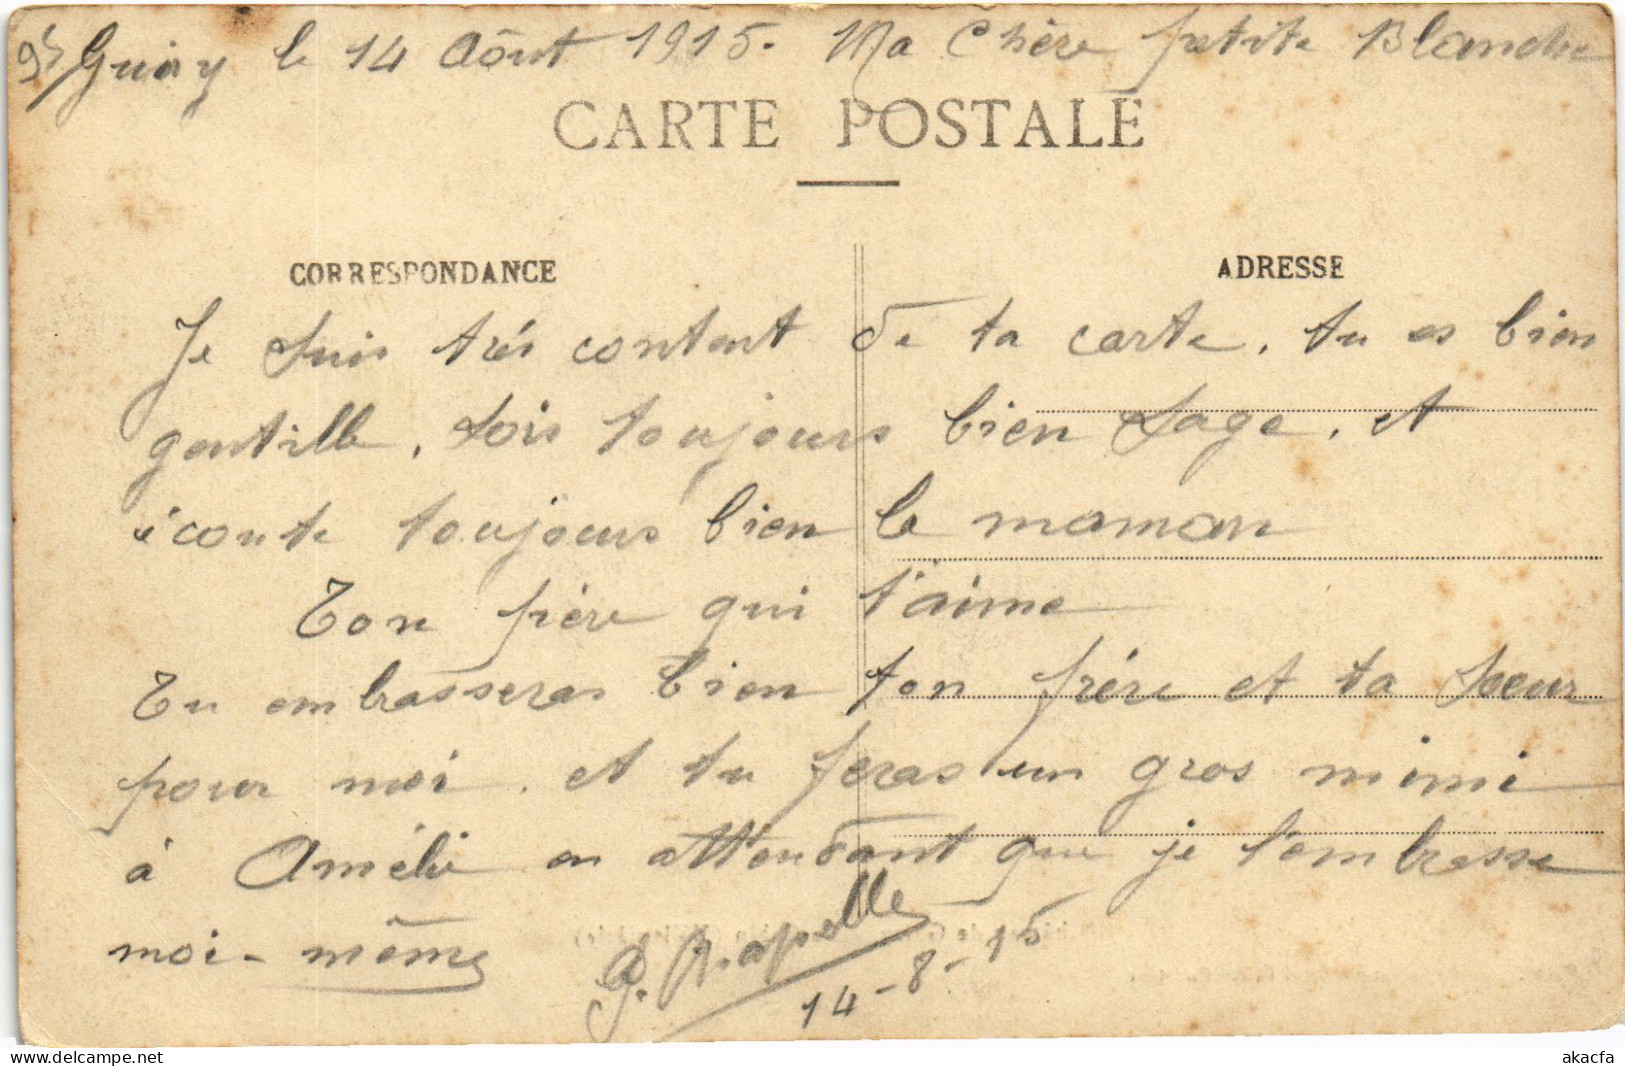 Guiry le 14 Aôut 1915. Ma Chère petite Blanche
CARTE POSTALE
CORRESPONDANCE
ADRESSE
Je suis trés content de ta carte, tu es bien
gentille, sois toujours bien sage, et
écoute toujours bien la maman
Ton père qui t'aime
Tu embrasseras bien ton frère et ta soeur
pour moi, et tu feras un gros mimi
à Amélie en attendant que je l'embrasse
moi-même
14-8-15
akacfa